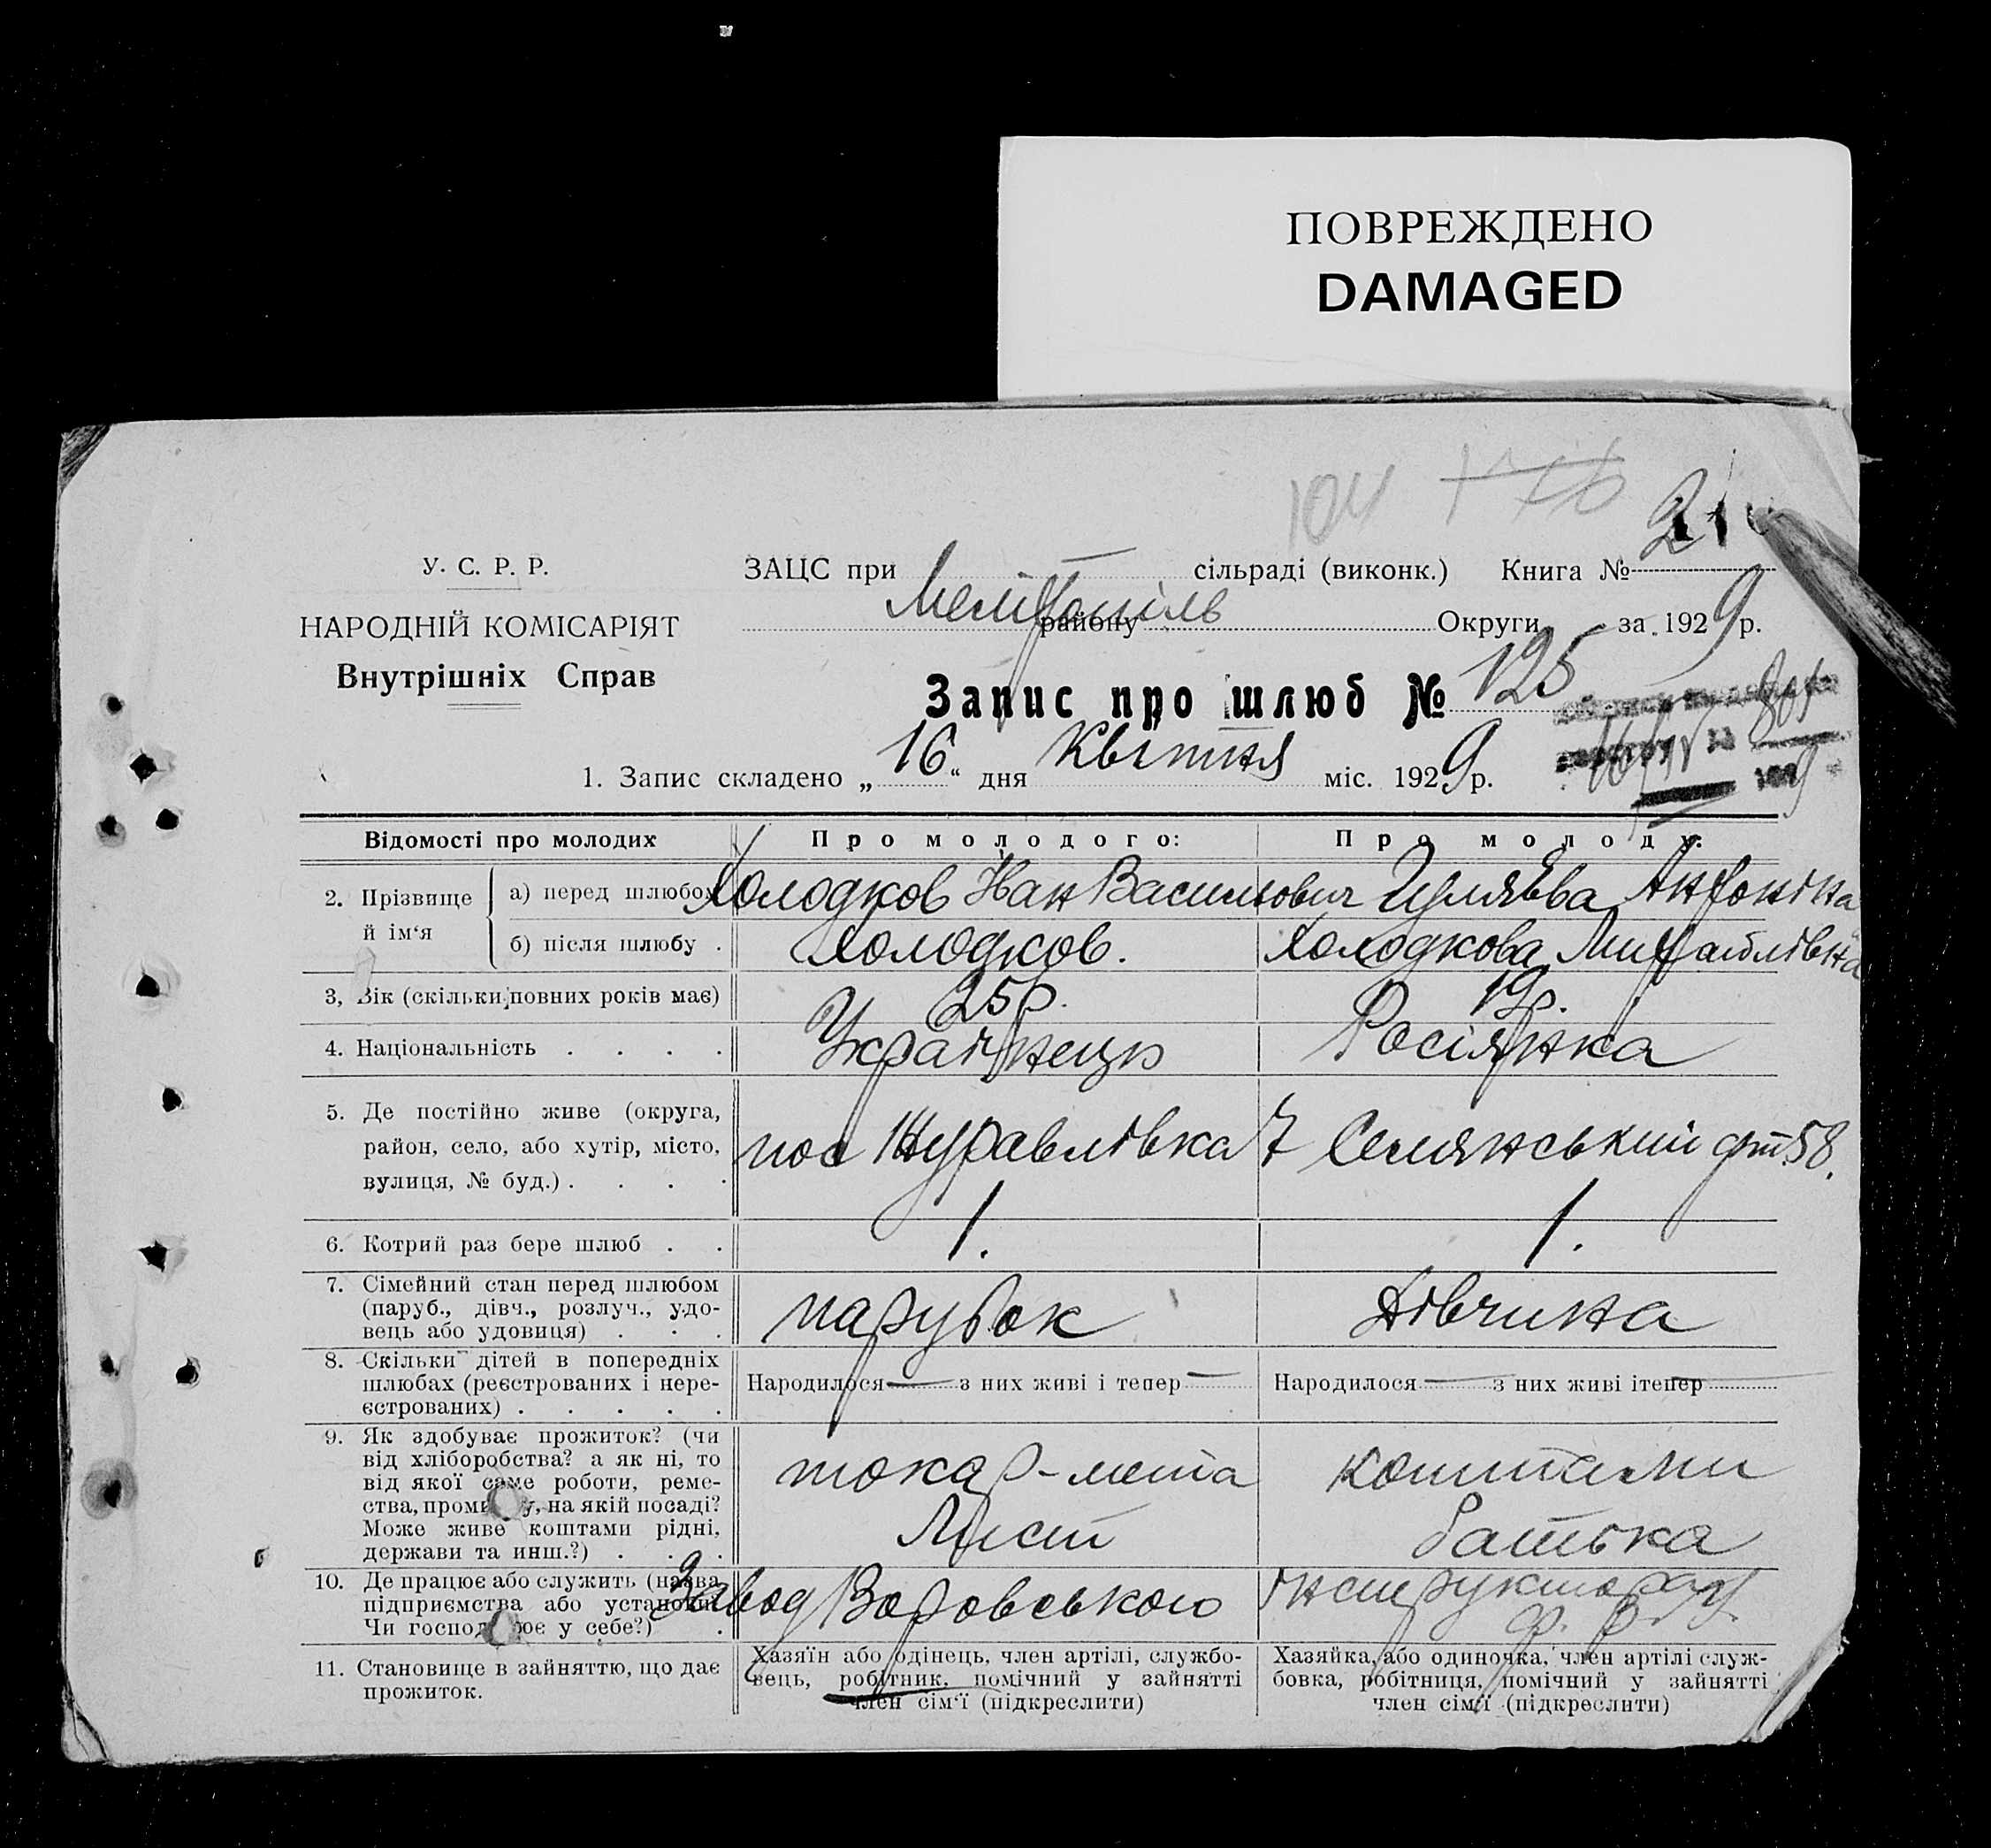 ПОВРЕЖДЕНО
DAMAGED
104 176
У. С. Р. Р.
НАРОДНІЙ КОМІСАРІЯТ
Внутрішніх Справ
ЗАЦС при Мелітопіль сільраді (виконк.) Книга № 2
району Округи за 1929 р.
Запис про шлюб № 125
1. Запис складено „16“ дня Квітня міс. 1929 р.
Відомості про молодих Про молодого: Про молоду:
2. Прізвище й ім‘я
а) перед шлюбом Холодков Іван Васильович Гуляєва Антоніна
б) після шлюбу . Холодков. Холодкова Михайлівна
3, Вік (скільки повних років має) 25 р. 19 р.
4. Національність . . . . Українець Росіянка
5. Де постійно живе (округа,
район, село, або хутір, місто,
вулиця, № буд.) . . . .
пос Журавлівка 7 Селянський 58.
6. Котрий раз бере шлюб . . 1. 1.
7. Сімейний стан перед шлюбом
(паруб., дівч., розлуч., удо-
вець або удовиця) . . .
парубок Дівчина
8. Скільки дітей в попередніх
шлюбах (реєстрованих і нере-
єстрованих) . . . . .
Народилося — з них живі і тепер —
Народилося — з них живі ітепер —
9. Як здобуває прожиток? (чи
від хліборобства? а як ні, то
від якої саме роботи, реме-
ства, промислу, на якій посаді?
Може живе коштами рідні,
держави та инш.?) . . .
токар-мета
Лист
коштами
батька
10. Де працює або служить (назва
підприємства або установи
Чи господарює у себе?) .
Завод Воровського
інструктора
11. Становище в зайняттю, що дає
прожиток.
Хазяїн або одінець, член артілі, службо-
вець, робітник, помічний у зайнятті
член сім‘ї (підкреслити)
Хазяйка, або одиночка, член артілі служ-
бовка, робітниця, помічний у зайнятті
член сім‘ї (підкреслити)